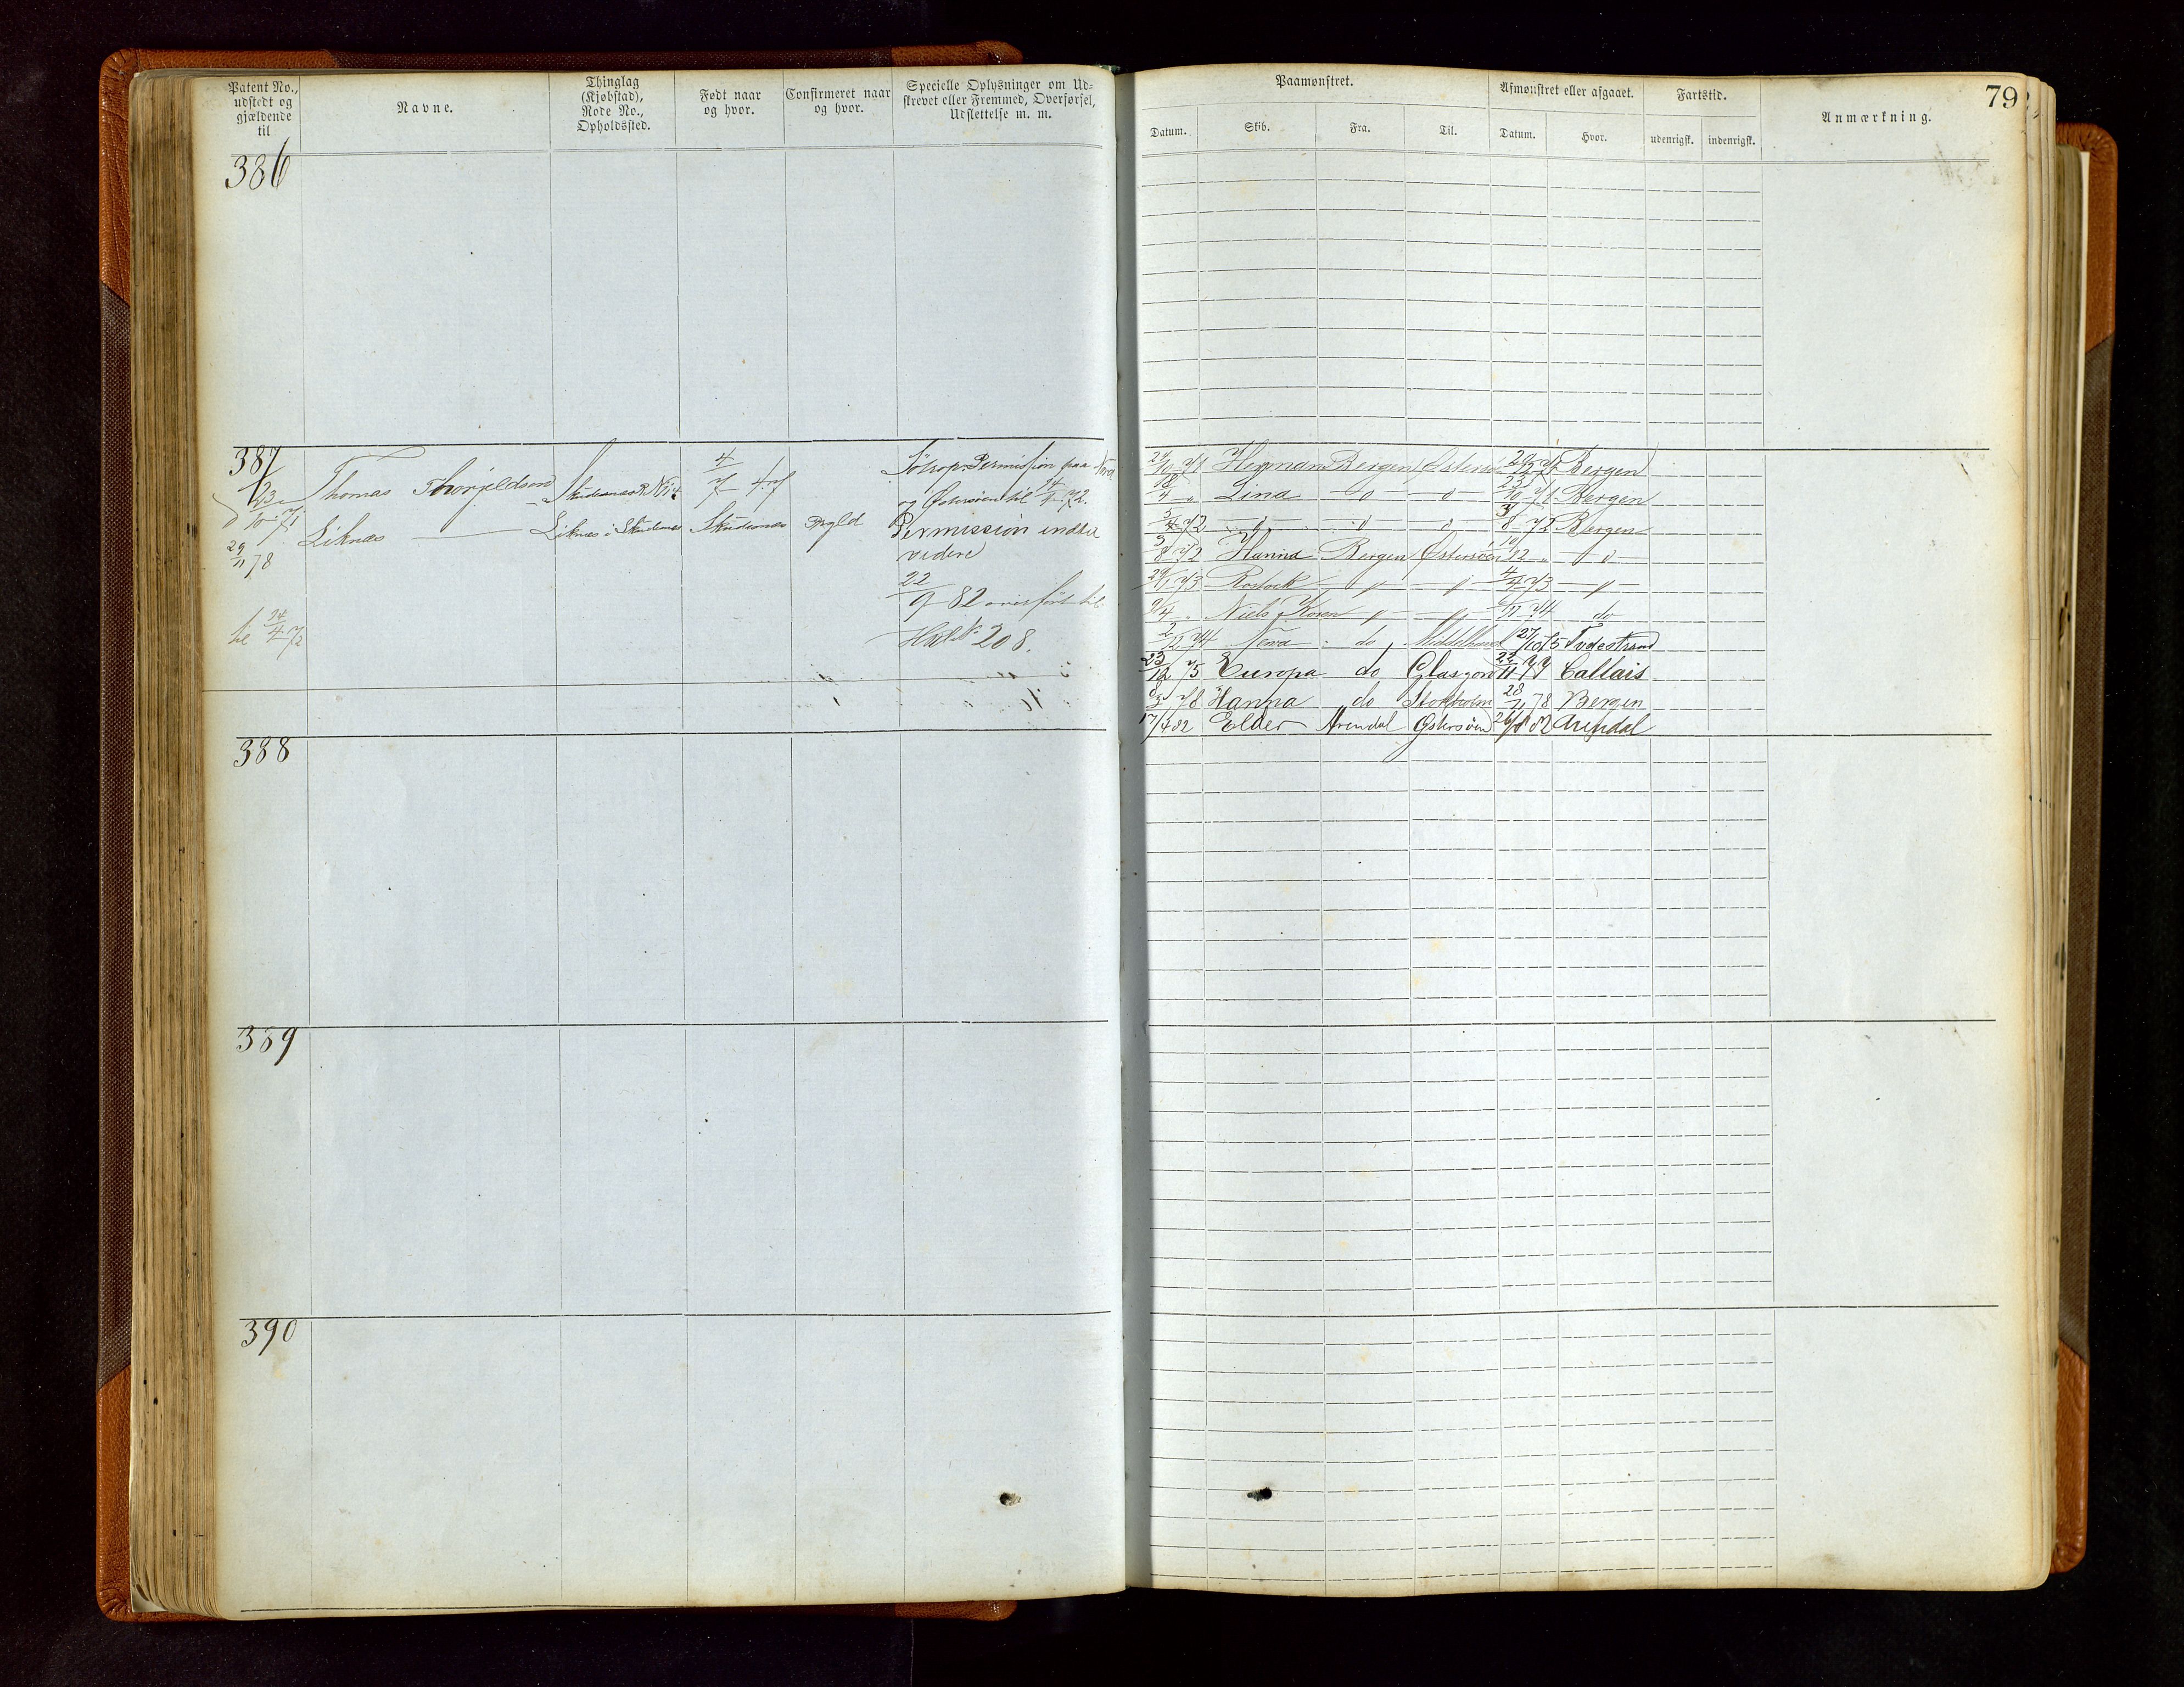 Patent No.,
udstedt og
gjældende
til
Navne.
Thinglag
(Kjøbstad),
Rode No.,
Opholdssted.
Født naar
og hvor.
Confirmeret naar
og hvor.
Specielle Oplysninger om Ud-
skrevet eller Fremmed, Overførsel,
Udslettelse m. m.
386
387
23/10 71
29/11 78
Thomas Thorjeldsen
Liknæs
Skudesnæs
Liknæs i Skudenæs
4/7 47
Skudesnæs
Permission paa
og Østersøen til 14/4 72.
Permission indtil
videre
22/9 82 overført til
Hovd No 208.
til 14/4 72
388
389
390
79
Paamønstret.
Afmønstret eller afgaaet.
Fartstid.
Anmærkning.
Datum.
Skib.
Fra.
Til.
Datum.
Hvor.
udenrigsk.
indenrigsk.
24/10 71 Herman Bergen Østersø Bergen
18/4 " Lina do do 23/10 71 Bergen
5/4 72 do do do 3/8 72 Bergen
3/8 72 Hanna Bergen Østersøen 12 " do
29/1 73 Rostock " " 4/4 73 "
9/4 " Niels Koren " " /11 74 do
2/12 74 Neva do Middelhavet 27/10 75 Tvedestrand
23/12 75 Europa do Glasgow 22/11 77 Callais
8/3 78 Hanna do Stokholm 28/11 78 Bergen
17/4 82 Elder Arendal Østersøen 26/8 82 Arendal